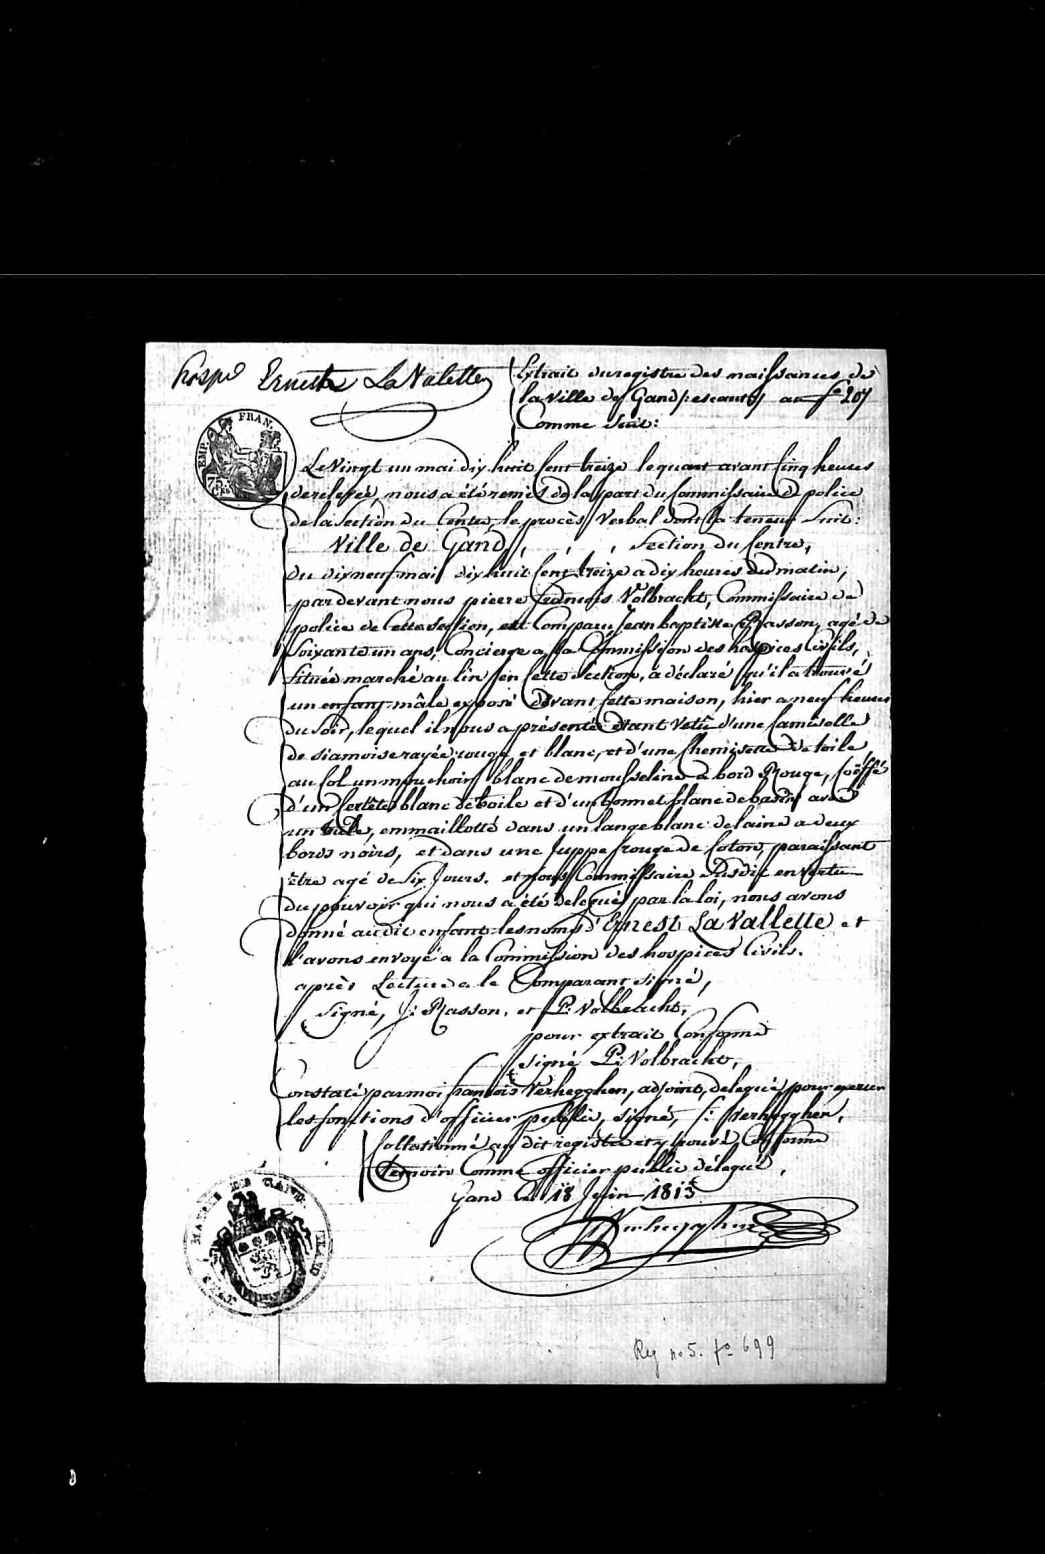 hospe Ernest La Valette
Extrait du registre des naissances de
la ville de Gand (escaut) au fo 207
Comme Suit:
EMP. FRAN.
75 C.
Le Vingt un mai dix huit Cent treize le quart avant Cinq heures
de relevée, nous a été remis de la part du Commissaire de police
de la Section du Centre, le procès Verbal dont la teneur Suit:
Ville de Gand, Section du Centre,
Du dix neuf mai dix huit Cent treize a dix heures du matin,
par devant nous pierre françois Volbracht, Commissaire de
police de Cette Section, est Comparu, Jean baptiste Rasson, agé de
Soixante un ans, Concierge a la Commission des hospices Civils,
Située marché au lin en Cette Section, a déclaré qu'il a trouvé
un enfant mâle exposé devant Cette maison, hier a neuf heures
du Soir, lequel il nous a présenté étant Vetû d'une Camisolle
de siamoise rayée rouge et blanc, et d'une Chemisette de toile,
au Col un mouchoir blanc de mousseline a bord Rouge, Coëffé
d'un Sertête blanc de toile et d'un bonnet blanc de basin avec
un tule, emmaillotté dans un lange blanc de laine a deux
bords noirs, et dans une Juppe rouge de Coton, paraissant
être agé de Six Jours. et nous Commissaire Susdit en vertu
du pouvoir qui nous a été delegué par la loi, nous avons
donné audit enfant les noms d'Ernest La Vallette et
l'avons envoyé a la Commission des hospices Civils.
après Lecture a le Comparant signé,
Signé, J: Rasson, et P. Volbracht,
pour extrait Conforme
signé P. Volbracht,
Constaté par moi françois Verhegghen, adjoint, delegué pour exercer
les fonctions d'officier public, signé, f: Verhegghen,
Collationné au dit registre et trouvé Conforme
Temoin Comme officier public délegué,
Gand le 18 Juin 1813
Verhegghen
MAIRIE DE GAND
Reg no 5. fo 699